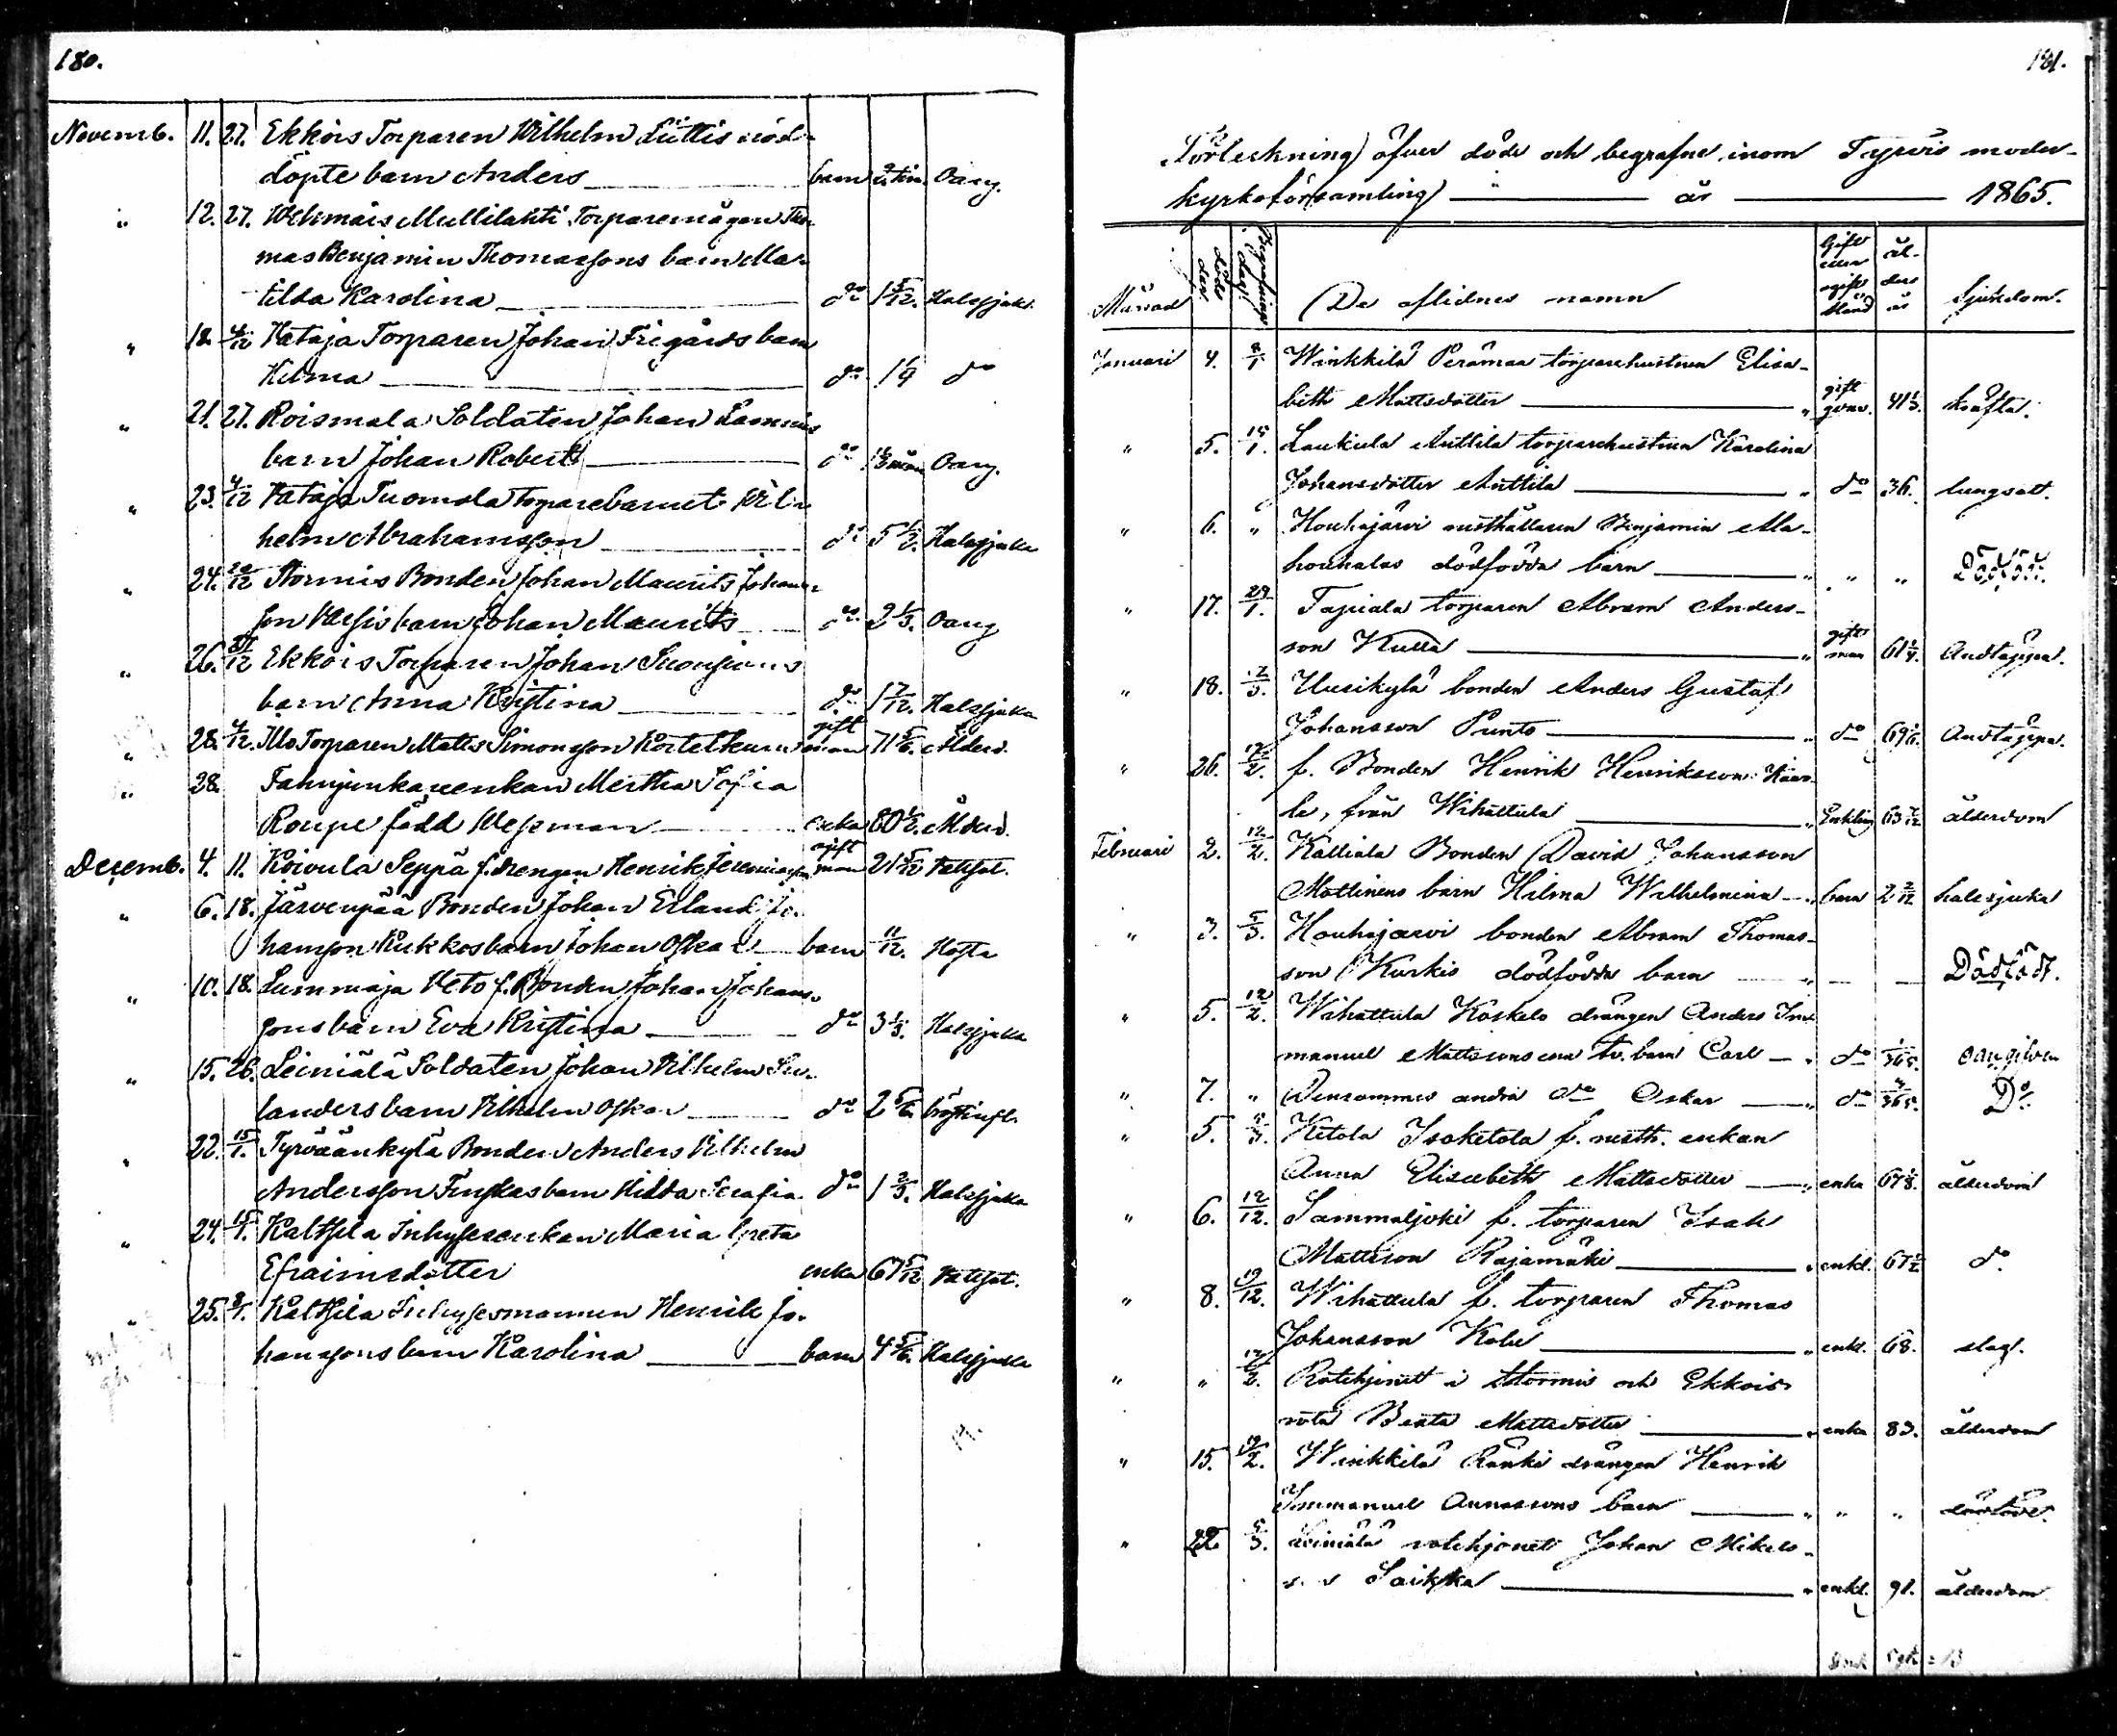 180.
Novemb. 11. 27. Ekkois Torparen Wilhelm nöd-
döpte barn Anders barn 2 tim. Oang.
" 12. 27. Wehmais Mullilahti Torparemågen Tho-
mas Benjamin Thomassons barn Ma-
tilda Karolina do 1 5/12. Halssjuka
" 18. 4/12 Kataja Torparen Johan Frigårds barn
Hilma do 1/4 do
" 21. 27. Roismala Soldaten Johan
barn Johan Robert do Oang.
" 23. 4/12 Kataja Tuomola Torparebarnet Vil-
helm Abrahamsson do 5 Halssjuka
" 24. Stormis Bonden Johan Maurits Johans-
son barn Johan Maurits do 2 1/3. Oang
" 26. 31/12 Ekkois Torparen Johan
barn Anna Kristina do 1 7/12. Halssjuka
" 28. 4/12. Illo Torparen Matts Simonsson gift man 71 5/6. Ålderd.
" 28. Fahnjunkareenkan Mertha Sofia
Roupe född Wegman enka 80 1/2. Ålderd.
Decemb. 4. 11. Koivula Seppä f. drengen Henrik gift man 21 5/12 Vattsot.
" 6. 18. Järvenpää Bonden Johan Erland Jo-
hansson Kukkos barn Johan Oskar barn 11/12. Hosta
" 10. 18. Lummaja Veto f. Bonden Johan Johans-
sons barn Eva Kristina do 3 1/3. Halssjuka
" 15. 26. Leiniälä Soldaten Johan Vilhelm
landers barn Vilhelm Oskar do 2 5/6.
" 22. 15/1. Tyrväänkylä Bonden Anders Vilhelm
Andersson barn Hilda Serafia do 1 2/3. Halssjuka
" 24. 15/1. Kaltsila Inhysesenkan Maria Greta
Efraimsdotter enka 67 5/12 Vattsot.
" 25. 8/1. Kaltsila Inhysesmannen Henrik Jo-
hanssons barn Karolina barn 4 5/6. Halssjuka
181.
Förteckning öfver döde och begrafne inom Tyrvis moder-
kyrkoförsamling år 1865.
Månad döds dag Begrafnings dag. De aflidnes namn Gift eller ogift stånd ålders år Sjukdom.
Januari 4. 8/1 Winkkilä Perämaa torparehustrun Elisa-
beth Mattsdotter gift qvin. 41 1/3. kräfta.
" 5. 15/1. Laukula Anttila torparehustrun Karolina
Johansdotter Anttila do 36. lungsot.
" 6. " Houhajärvi rusthållaren Benjamin Ala-
houhalas dödfödda barn " " Dödföd.
" 17. 29/1. Tapiala torparen Abram Anders-
son Kulla gift man 61 1/4. Andtäppa.
" 18. 12/3. Uusikylä bonden Anders Gustaf
Johansson Punto do 69 1/6. Andtäppa.
" 26. 12/2. f. Bonden Henrik Henriksson
la, från Wihattula Enkling 63 7/12 ålderdom
Februari 2. 12/2. Kalliala Bonden David Johansson
Mattinens barn Hilma Wilhelmina barn 2 2/12 halssjuka
" 3. 5/3. Houhajärvi bonden Abram Thomas-
son Kurkis dödfödda barn Dödföd.
" 5. 12/2. Wihattula Koskelo drängen Anders Im-
manuel Mattssons ena tv. barn Carl do 1/365. oangifven
" 7. " Densammes andra do Oskar do 3/365. Do
" 5. 5/3. Ketola Isoketola f. rusth. enkan
Anna Elisabeth Mattsdotter enka 67 ålderdom
" 6. 12/12. Sammaljoki f. torparen Isak
Mattsson Rajamäki enkl. 67 do
" 8. 19/12. Wihattula f. torparen Thomas
Johansson enkl. 68. slag.
" " 12/2. Rotehjonet i Stormis och Ekkois
rota Beata Mattsdotter enka 83. ålderdom
" 15. 19/2. Winkkilä Ränki drängen Henrik
Immanuel barn " " dödföd.
" 22. 5/3. Leiniälä rotehjonet Johan Mikels-
son Saikka enkl. 91. ålderdom